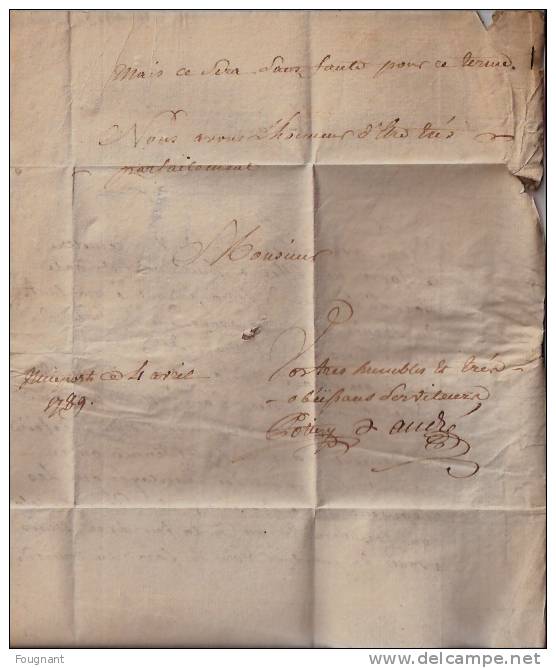 Mais ce sera sans faute pour ce terme.
Nous avons L'honneur d'être trés
parfaitement
Monsieur
Vos tres humbles et trés
obeissans Serviteurs
Nieuport ce 4 avril
1789.
& andré
Fougnant
delcampe.net